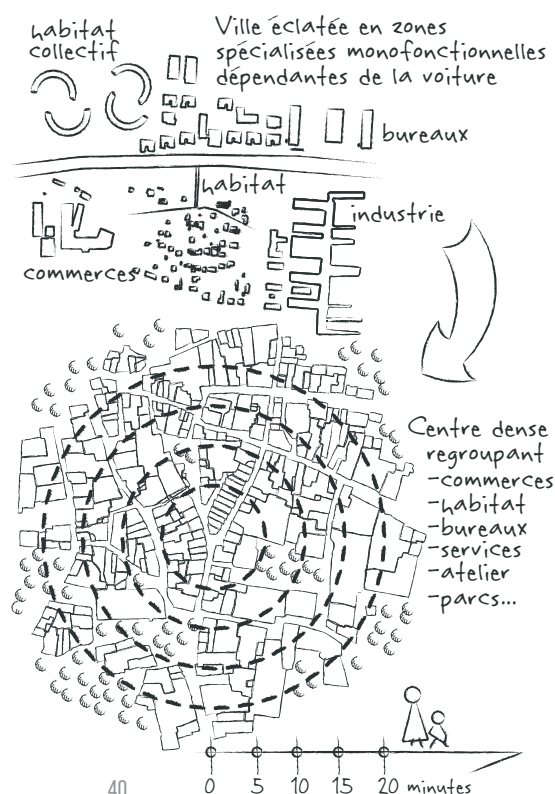 habitat
collectif
Ville éclatée en zones
spécialisées monofonctionnelles
dépendantes de la voiture
bureaux
habitat
industrie
commerces
Centre dense
regroupant
-commerces
-habitat
-bureaux
-services
-atelier
-parcs...
0 5 10 15 20 minutes
40